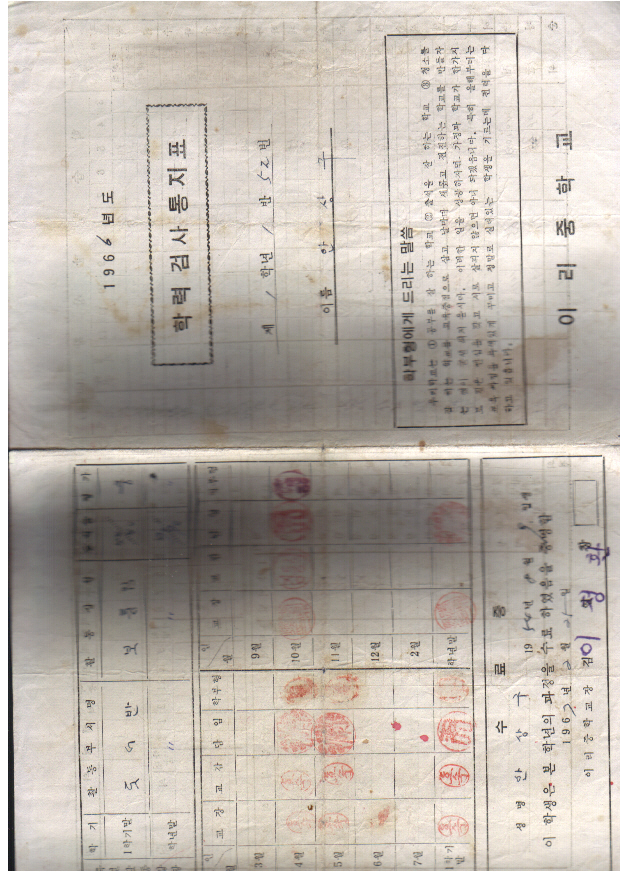 학기 활동부서명 활동상황 평가
1학기말 도서반 보통임
학년말 〃 〃
월 인 교장 교감 담임 학부형
월 인 교장 교감 담임 학부형
3월 9월
4월 10월
5월 11월
6월 12월
7월 2월
1학기말 학년말
수료증
성명 안상구 1954년 8월 9일생
이 학생은 본 학년의 과정을 수료 하였음을 증명함
1967년 2월 25일
이리중학교장 김 이정환
1966년도
학력검사통지표
제 1 학년 1 반 52번
이름 안상구
학부형에게 드리는 말씀
우리학교는 ① 공부를 잘 하는 학교 ② 출석을 잘 하는 학교 ③ 청소를
잘 하는 학교를 교육중점으로 삼고 날마다 새롭고 전진하는 학교를 만들자
는 이러한 일을 성공하자면 가정과 학교가 한가지
로 깊은 서로 살피지 않으면 아니 되겠읍니다. 특히 올해부터는
꾸미고 정말로 실력있는 학생을 기르는데 전력을 다
하고 있읍니다.
이리중학교